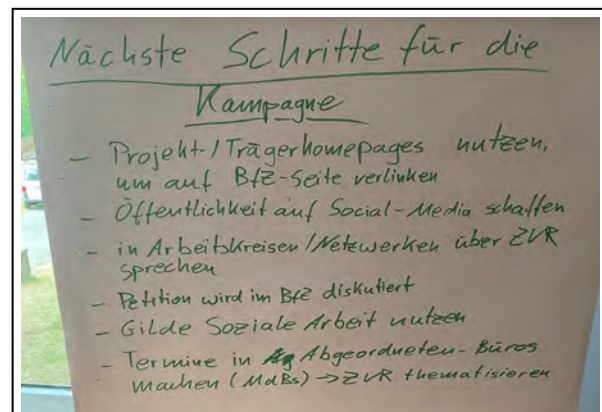 Nächste Schritte für die
Kampagne
- Projekt-/Trägerhomepages nutzen,
um auf BfZ-Seite verlinken
- Öffentlichkeit auf Social-Media schaffen
- in Arbeitskreisen/Netzwerken über ZVR
sprechen
- Petition wird im BfZ diskutiert
- Gilde Soziale Arbeit nutzen
- Termine in Abgeordneten-Büros
machen (MdBs) → ZVR thematisieren